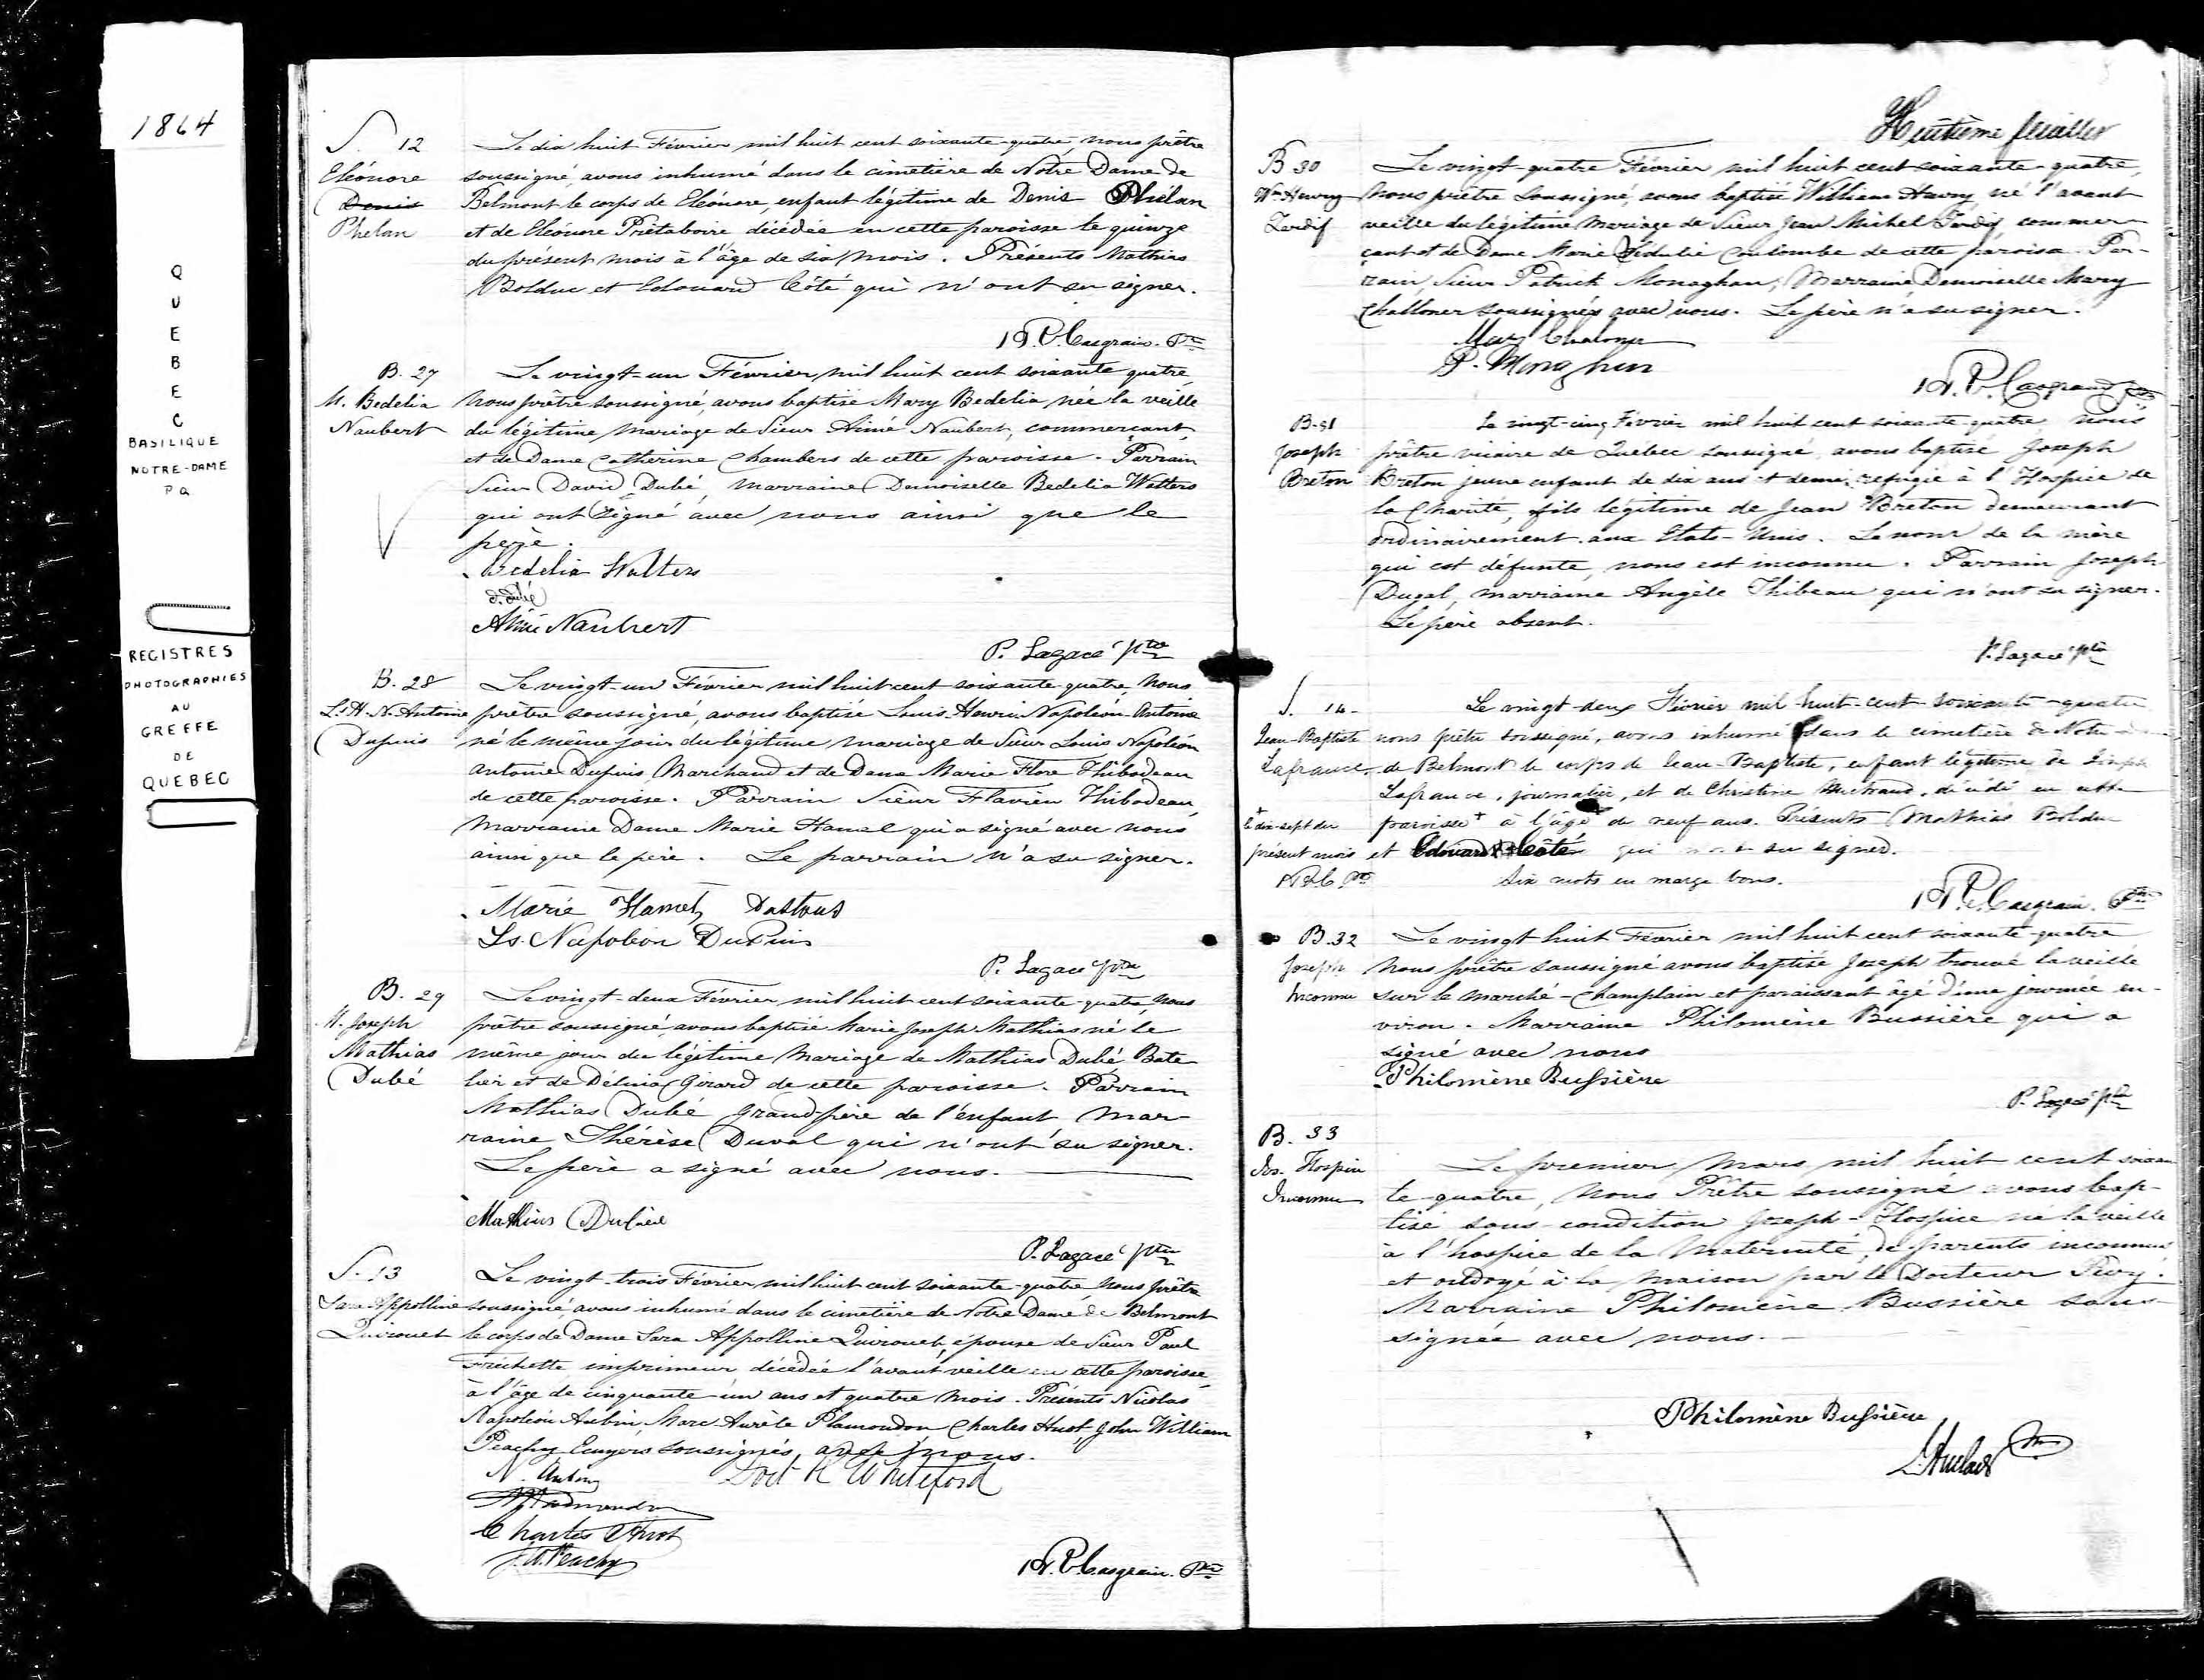 1864
QUEBEC
BASILIQUE
NOTRE-DAME
PQ
REGISTRES
PHOTOGRAPHIES
AU
GREFFE
DE
QUEBEC
S. 12
Eléonore
Denis
Phelan
Le dix huit Février mil huit cent soixante-quatre, nous prêtre
soussigné, avons inhumé dans le cimetière de Notre Dame de
Belmont le corps de Eléonore, enfant légitime de Denis Phélan
et de Eléonore Prêtaboire décédée en cette paroisse le quinze
du présent mois à l'âge de six mois. Présents Mathias
Bolduc et Edouard Côté qui n'ont su signer.
Casgrain Ptre
B. 27
M. Bedelia
Naubert
Le vingt-un Février mil huit cent soixante quatre
Nous prêtre soussigné, avons baptisé Mary Bedelia née la veille
du légitime mariage de Sieur Aimé Naubert, commerçant,
et de Dame Catherine Chambers de cette paroisse. Parrain
Sieur David Dubé, Marraine Demoiselle Bedelia Walters
qui ont signé avec nous ainsi que le
père.
Bedelia Walters
D. Dubé
Aimé Naubert
P. Lagacé ptre
B. 28
L. H. N. Antoine
Dupuis
Le vingt-un Février mil huit cent soixante-quatre, Nous
prêtre soussigné, avons baptisé Louis Henri Napoléon Antoine
né le même jour du légitime mariage de Sieur Louis Napoléon
Antoine Dupuis Marchand et de Dame Marie Flore Thibodeau
de cette paroisse. Parrain Sieur Flavien Thibodeau,
Marraine Dame Marie Hamel qui a signé avec nous
ainsi que le père. Le parrain n'a su signer.
Marie Hamel
Ls. Napoléon DuPuis
P. Lagacé ptre
B. 29
M. Joseph
Mathias
Dubé
Le vingt-deux Février mil huit cent soixante-quatre, Nous
prêtre soussigné, avons baptisé Marie Joseph Mathias né le
même jour du légitime mariage de Mathias Dubé Bate-
lier et de Délina Girard de cette paroisse. Parrain
Mathias Dubé Grand-père de l'enfant Mar-
raine Thérèse Duval qui n'ont su signer.
Le père a signé avec nous.
Mathias
P. Lagacé ptre
S. 13
Sara Appolline
Quirouet
Le vingt-trois Février mil huit cent soixante-quatre Nous prêtre
soussigné, avons inhumé dans le cimetière de Notre Dame de Belmont
le corps de Dame Sara Appolline Quirouet, épouse de Sieur Paul
Fréchette imprimeur décédée l'avant veille en cette paroisse
à l'âge de cinquante-un ans et quatre mois. Présents Nicolas
Napoléon Aubin, Marc Aurèle Plamondon Charles Huot, John William
Peachy Ecuyers soussignés, avec nous.
N. Aubin
Whiteford
Charles Huot
J. W. Peachy
Casgrain Ptre
Huitième feuillet
B 30
Wm Henry
Tardif
Le vingt-quatre Février mil huit cent soixante-quatre,
Nous prêtre soussigné, avons baptisé William Henry né l'avant
veille du légitime mariage de Sieur Jean Michel Tardif, commer-
çant et de Dame Marie Fidulie Coulombe de cette paroisse. Par-
rain, Sieur Patrick Monaghan, Marraine Demoiselle Mary
Challoner soussignés avec nous. Le père n'a su signer.
Mary Chaloner
P. Monaghan
Casgrain Ptre
B. 31
Joseph
Breton
Le vingt-cinq Février mil huit cent soixante-quatre Nous
prêtre vicaire de Québec soussigné, avons baptisé Joseph
Breton jeune enfant de dix ans et demi, réfugié à l'Hospice de
la Charité, fils légitime de Jean Breton demeurant
ordinairement aux Etats-Unis. Le nom de la mère
qui est défunte, nous est inconnu. Parrain Joseph
Dugal, marraine Angèle Thibeau qui n'ont su signer.
Le père absent.
P. Lagacé ptre
S. 14
Jean-Baptiste
Lafrance
Le vingt-deux Février mil huit-cent soixante-quatre
nous prêtre soussigné, avons inhumé dans le cimetière de Notre
de Belmont le corps de Jean-Baptiste, enfant légitime de Joseph
Lafrance, journalier, et de Christine décédé en cette
+ le dix-sept du
présent mois
paroisse+ à l'âge de neuf ans. Présents Mathias Bolduc
et Edouard Côté qui n'ont su signer.
Six mots en marge bons.
Casgrain Ptre
B. 32
Joseph
Inconnu
Le vingt huit Février mil huit cent soixante-quatre
Nous prêtre soussigné avons baptisé Joseph trouvé la veille
sur le marché-Champlain et paraissant âgé d'une journée en-
viron. Marraine Philomène Bussière qui a
signé avec nous
Philomène Bussière
P. Lagacé ptre
B. 33
Jos. Hospice
Inconnu
Le premier Mars mil huit cent soixan
te-quatre, Nous Prêtre soussigné avons bap-
tisé sous-condition Joseph-Hospice né la veille
à l'hospice de la Maternité, de parents inconnus
et ondoyé à la maison par le Docteur
Marraine Philomène Bussière sous-
signée avec nous.
Philomène Bussière